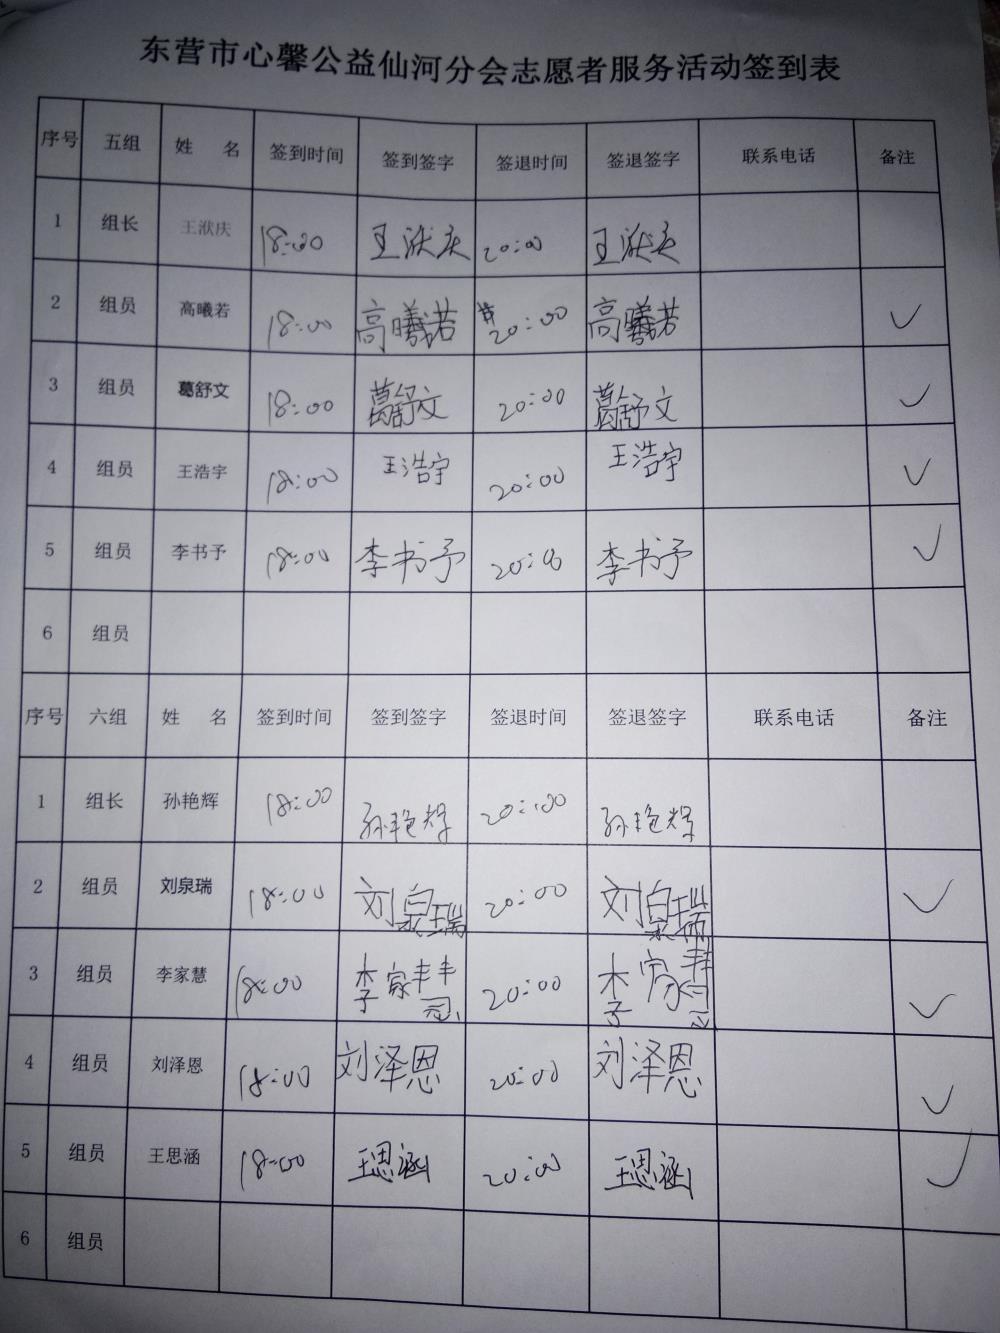 东营市心馨公益仙河分会志愿者服务活动签到表
序号 五组 姓 名 签到时间 签到签字 签退时间 签退签字 联系电话 备注
1 组长 王洑庆 18:00 王洑庆 20:00 王洑庆
2 组员 高曦若 18:00 高曦若 20:00 高曦若 ✓
3 组员 葛舒文 18:00 葛舒文 20:00 葛舒文 ✓
4 组员 王浩宇 18:00 王浩宇 20:00 王浩宇 ✓
5 组员 李书予 18:00 李书予 20:00 李书予 ✓
6 组员
序号 六组 姓 名 签到时间 签到签字 签退时间 签退签字 联系电话 备注
1 组长 孙艳辉 18:00 孙艳辉 20:00 孙艳辉
2 组员 刘泉瑞 18:00 刘泉瑞 20:00 刘泉瑞 ✓
3 组员 李家慧 18:00 李家慧 20:00 李家慧 ✓
4 组员 刘泽恩 18:00 刘泽恩 20:00 刘泽恩 ✓
5 组员 王思涵 18:00 王思涵 20:00 王思涵 ✓
6 组员